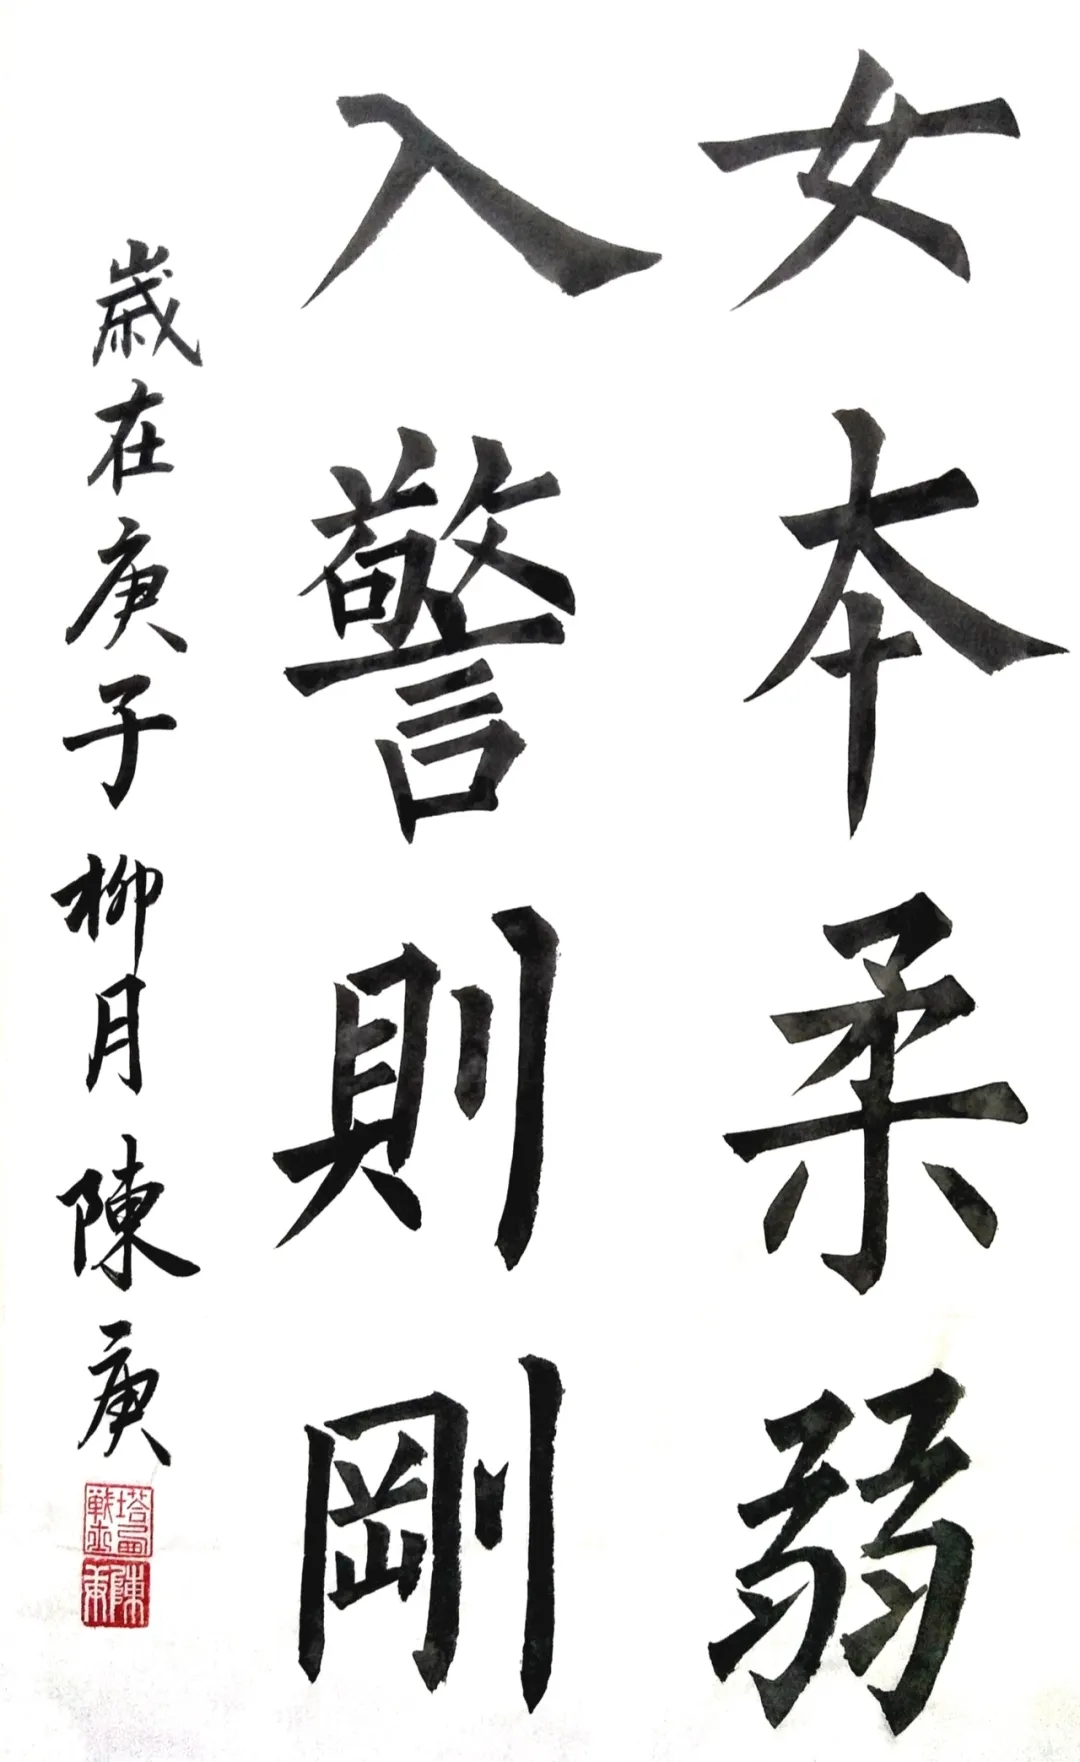 女本柔弱
入警則剛
歲在庚子柳月陳庚
陳庚